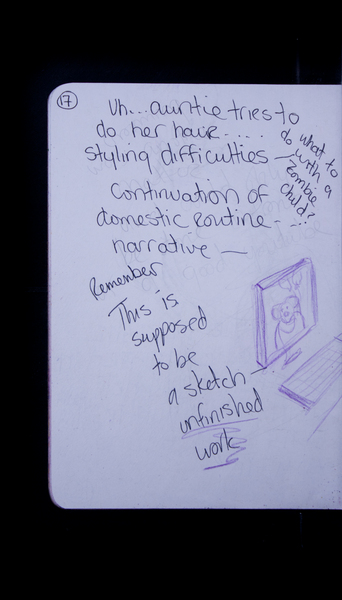 17
Uh...auntie tries to
do her hair.....
styling difficulties —
do what to
do with a
Zombie
child?
Continuation of
domestic routine - ...
narrative —
Remember
This is
supposed
to be
a sketch —
unfinished
work